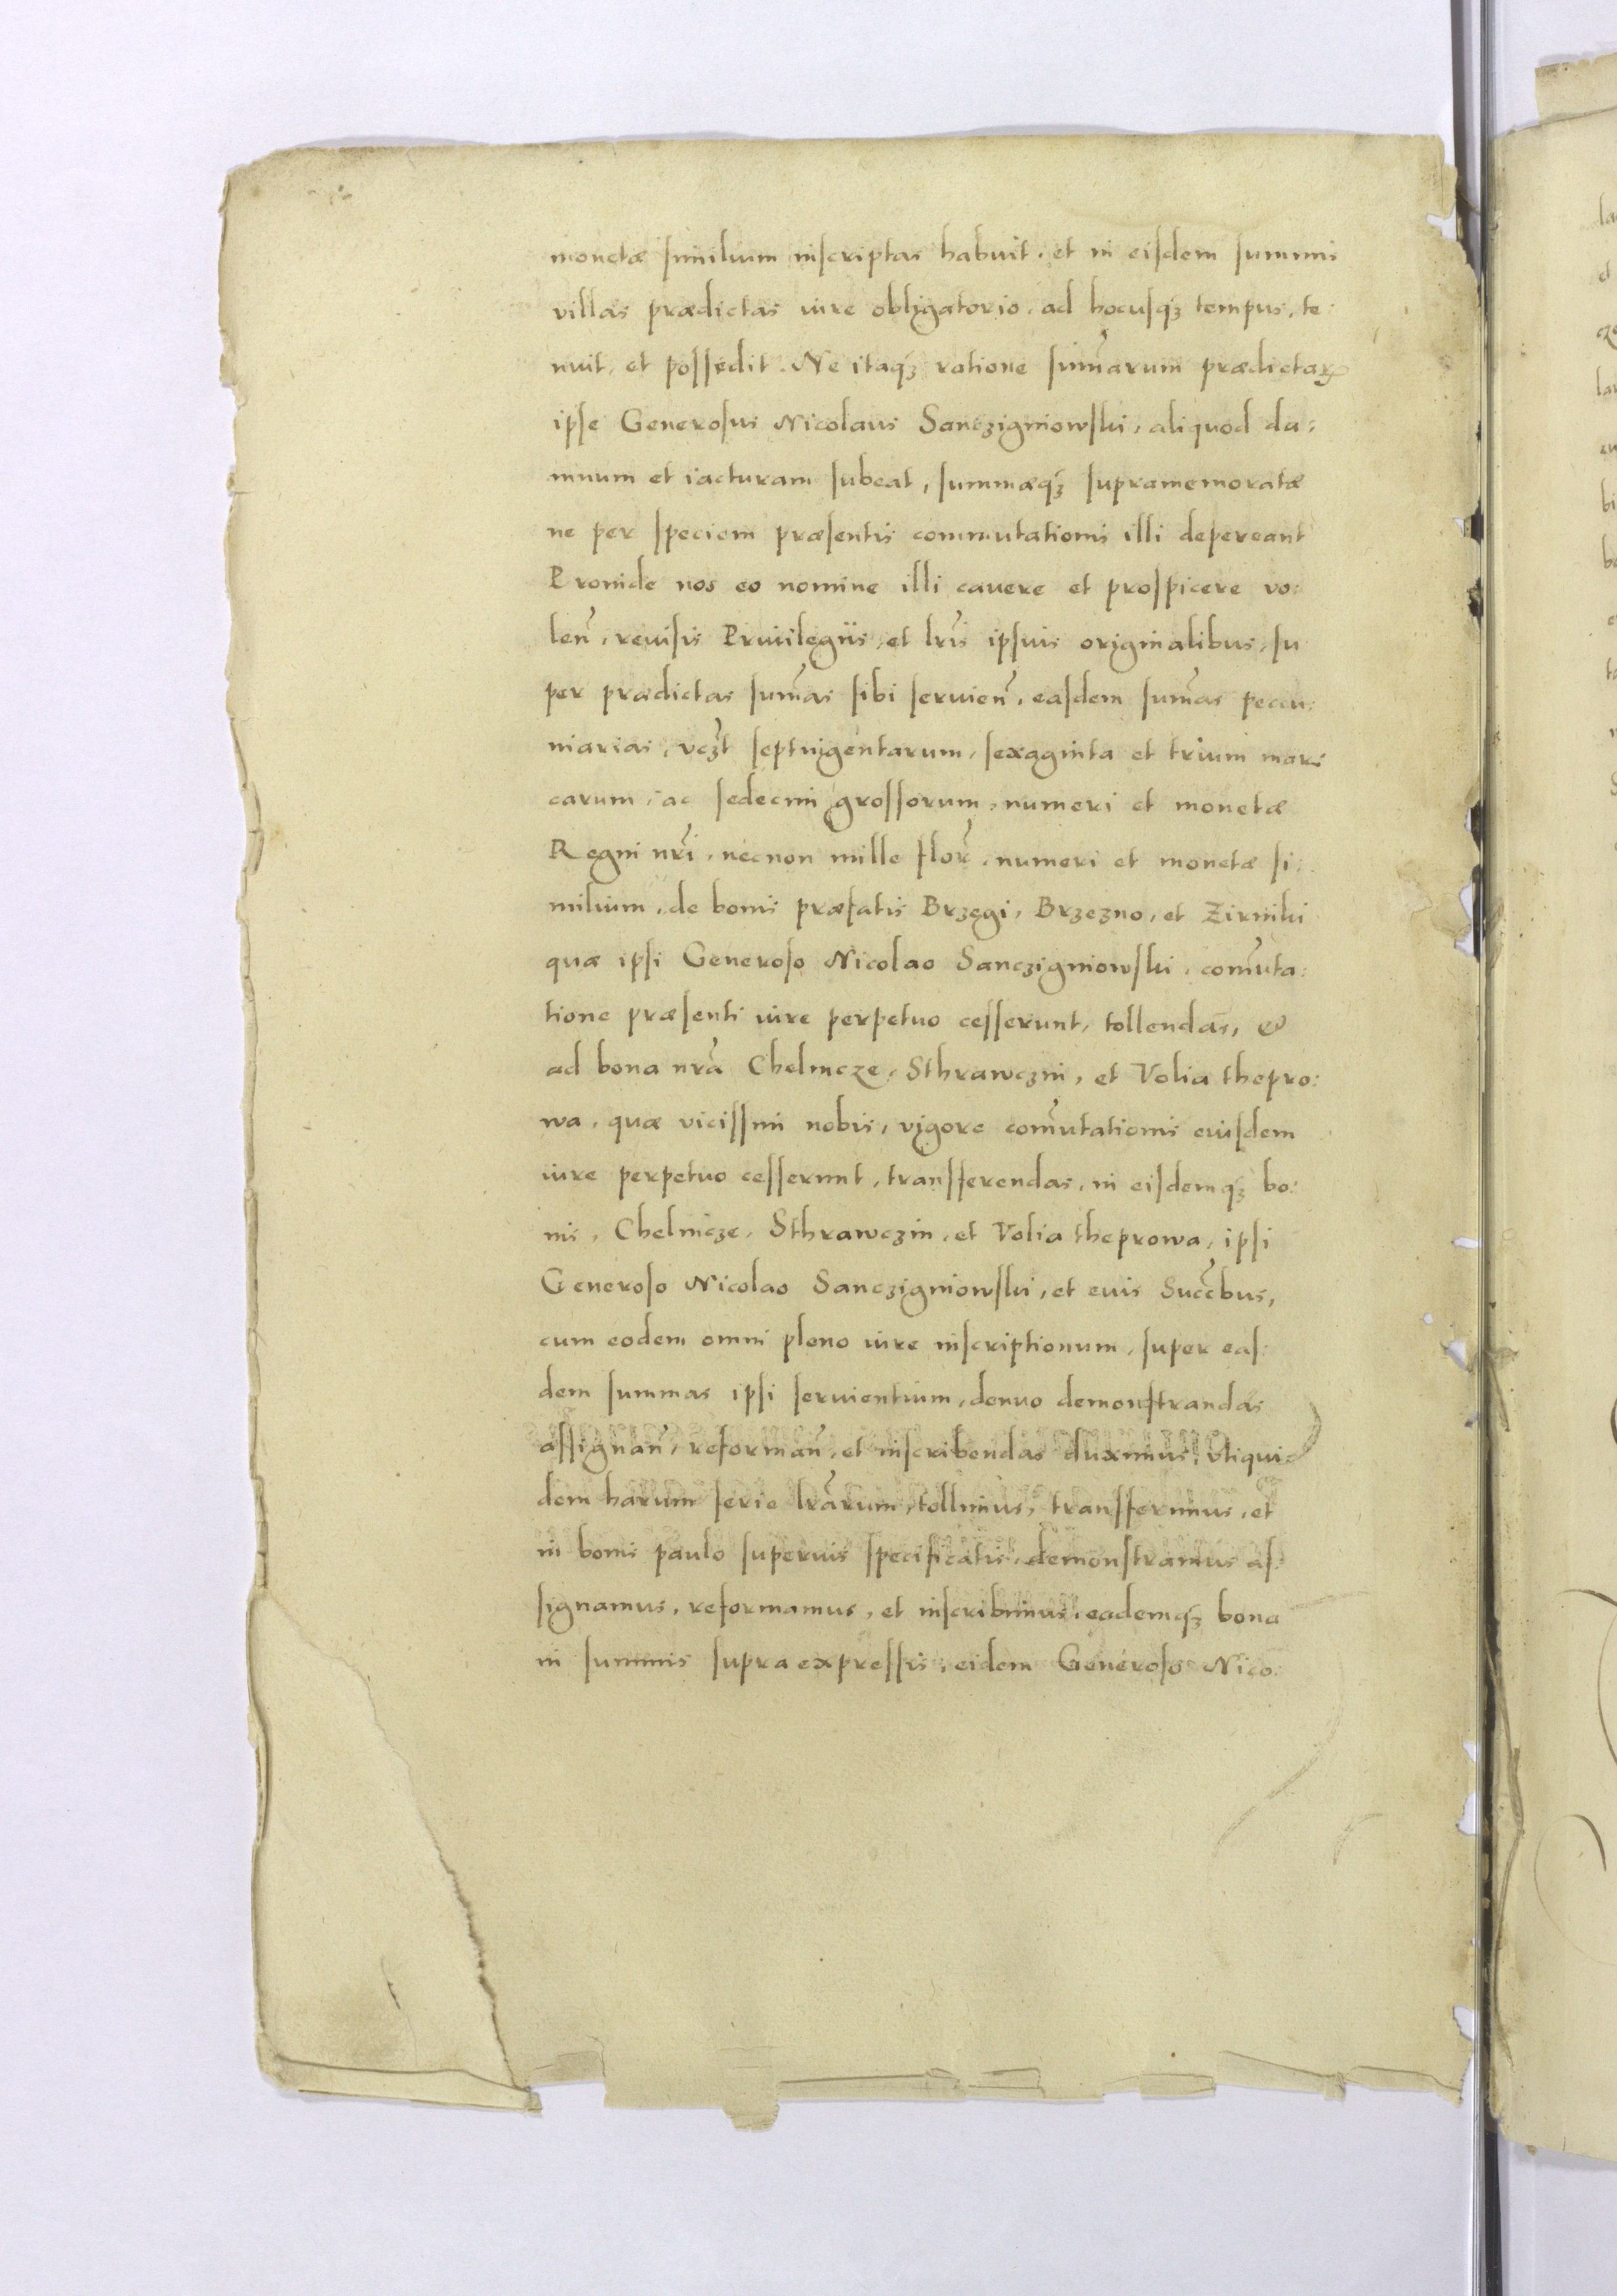 monetæ similium inscriptas habuit. et in eisdem summis
villas prædictas iure obligatorio. ad hocusq₃ tempus, te:
nuit, et possedit. Ne itaq₃ ratione sum̃arum prædictaꝝ
ipse Generosus Nicolaus Sanczigniowski, aliquod da:
mnum et iacturam subeat, summæq₃ supramemoratæ
ne per speciem præsentis commutationis illi depereant
Proinde nos eo nomine illi cauere et prospicere vo:
len̄, reuisis Priuilegiis, et lr̄is ipsius originalibus, su
per prædictas sum̃as sibi seruien̄, easdem sum̃as pecu:
niarias, vcz̄t septuigentarum, sexaginta et trium mar:
carum, ac sedecim grossorum, numeri et monetæ
Regni nr̄i, necnon mille flor̄. numeri et monetæ si:
milium, de bonis præfatis Brzegi, Brzezno, et Zirniki
quæ ipsi Generoso Nicolao Sanczigniowski, com̃uta:
tione præsenti iure perpetuo cesserunt, tollendas, &
ad bona nr̄a Chelmcze, Sthrawczin, et Volia thepro:
wa, quæ vicissim nobis, vigore com̃utationis eiusdem
iure perpetuo cesserunt, transferendas, in eisdemq₃ bo:
nis, Chelmcze, Sthrawczin, et Volia theprowa, ipsi
Generoso Nicolao Sanczigniowski, et euis Succ̄bus,
cum eodem omni pleno iure inscriptionum, super eas:
dem summas ipsi seruientium, denuo demonstrandas
assignan̄, reforman̄, et inscribendas duximus, Vtiqui:
dem harum serie lr̄arum, tollimus, transferimus, et
in bonis paulo superius specificatis, demonstramus as:
signamus, reformamus, et inscribimus, eademq₃ bona
in summis supra expressis, eidem Generoso Nico: